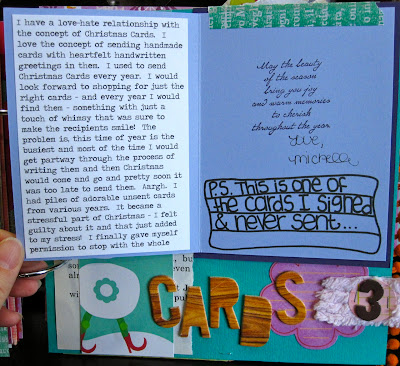 I have a love-hate relationship with
the concept of Christmas Cards. I
love the concept of sending handmade
cards with heartfelt handwritten
greetings in them. I used to send
Christmas Cards every year. I would
look forward to shopping for just the
right cards - and every year I would
find them - something with just a
touch of whimsy that was sure to
make the recipients smile! The
problem is, this time of year is the
busiest and most of the time I would
get partway through the process of
writing them and then Christmas
would come and go and pretty soon it
was too late to send them. Aargh. I
had piles of adorable unsent cards
from various years. It became a
stressful part of Christmas - I felt
guilty about it and that just added
to my stress! I finally gave myself
permission to stop with the whole
May the beauty
of the season
bring you joy
and warm memories
to cherish
throughout the year.
Love,
Michelle
P.S. This is one of
the cards I signed
& never sent...
CARDS 3